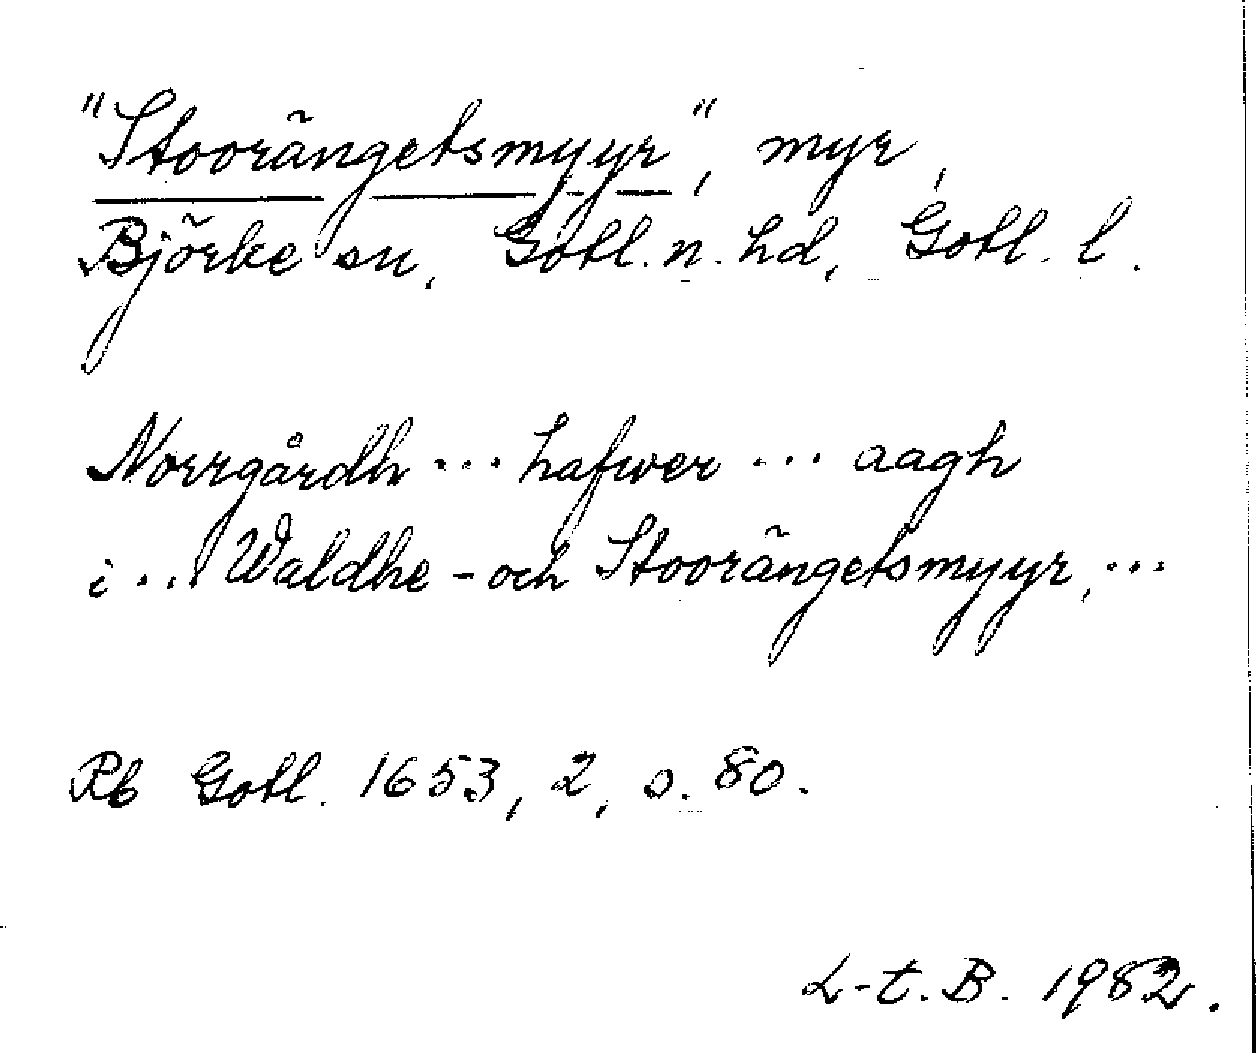 "Stoorängetsmyyr", myr,
Björke sn, Gotl. n. hd, Gotl. l.
Norrgårdh ... hafwer ... aagh
i ... Waldhe - och Stoorängetsmyyr, ...
Rb Gotl. 1653, 2, s. 80.
L-t. B. 1982.